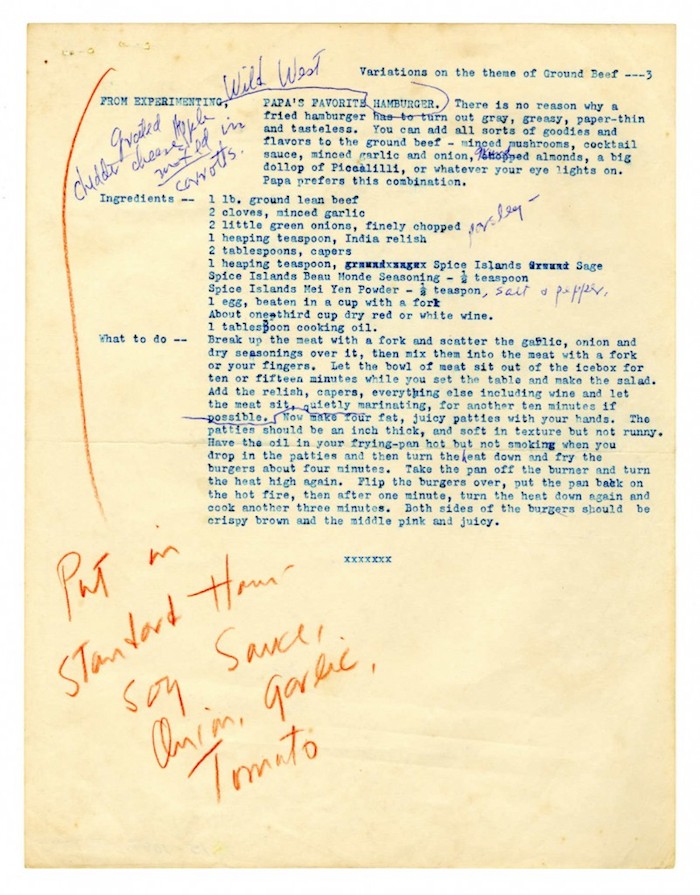 Variations on the theme of Ground Beef ---3
Wild West
FROM EXPERIMENTING, PAPA'S FAVORITE HAMBURGER. There is no reason why a
fried hamburger has to turn out gray, greasy, paper-thin
and tasteless. You can add all sorts of goodies and
flavors to the ground beef - minced mushrooms, cocktail
sauce, minced garlic and onion, almonds, a big
dollop of Piccalilli, or whatever your eye lights on.
Papa prefers this combination.
grated apple
chedder cheese,
in
carrots.
Ingredients -- 1 lb. ground lean beef
2 cloves, minced garlic
2 little green onions, finely chopped parsley -
1 heaping teaspoon, India relish
2 tablespoons, capers
1 heaping teaspoon, Spice Islands Sage
Spice Islands Beau Monde Seasoning - ½ teaspoon
Spice Islands Mei Yen Powder - ½ teaspon, salt & pepper,
1 egg, beaten in a cup with a fork
About one third cup dry red or white wine.
1 tablespoon cooking oil.
What to do -- Break up the meat with a fork and scatter the garlic, onion and
dry seasonings over it, then mix them into the meat with a fork
or your fingers. Let the bowl of meat sit out of the icebox for
ten or fifteen minutes while you set the table and make the salad.
Add the relish, capers, everything else including wine and let
the meat sit, quietly marinating, for another ten minutes if
possible. Now make four fat, juicy patties with your hands. The
patties should be an inch thick, and soft in texture but not runny.
Have the oil in your frying-pan hot but not smoking when you
drop in the patties and then turn the heat down and fry the
burgers about four minutes. Take the pan off the burner and turn
the heat high again. Flip the burgers over, put the pan back on
the hot fire, then after one minute, turn the heat down again and
cook another three minutes. Both sides of the burgers should be
crispy brown and the middle pink and juicy.
xxxxxxx
Put in
Standard Ham-
Soy Sauce,
Onion, Garlic,
Tomato